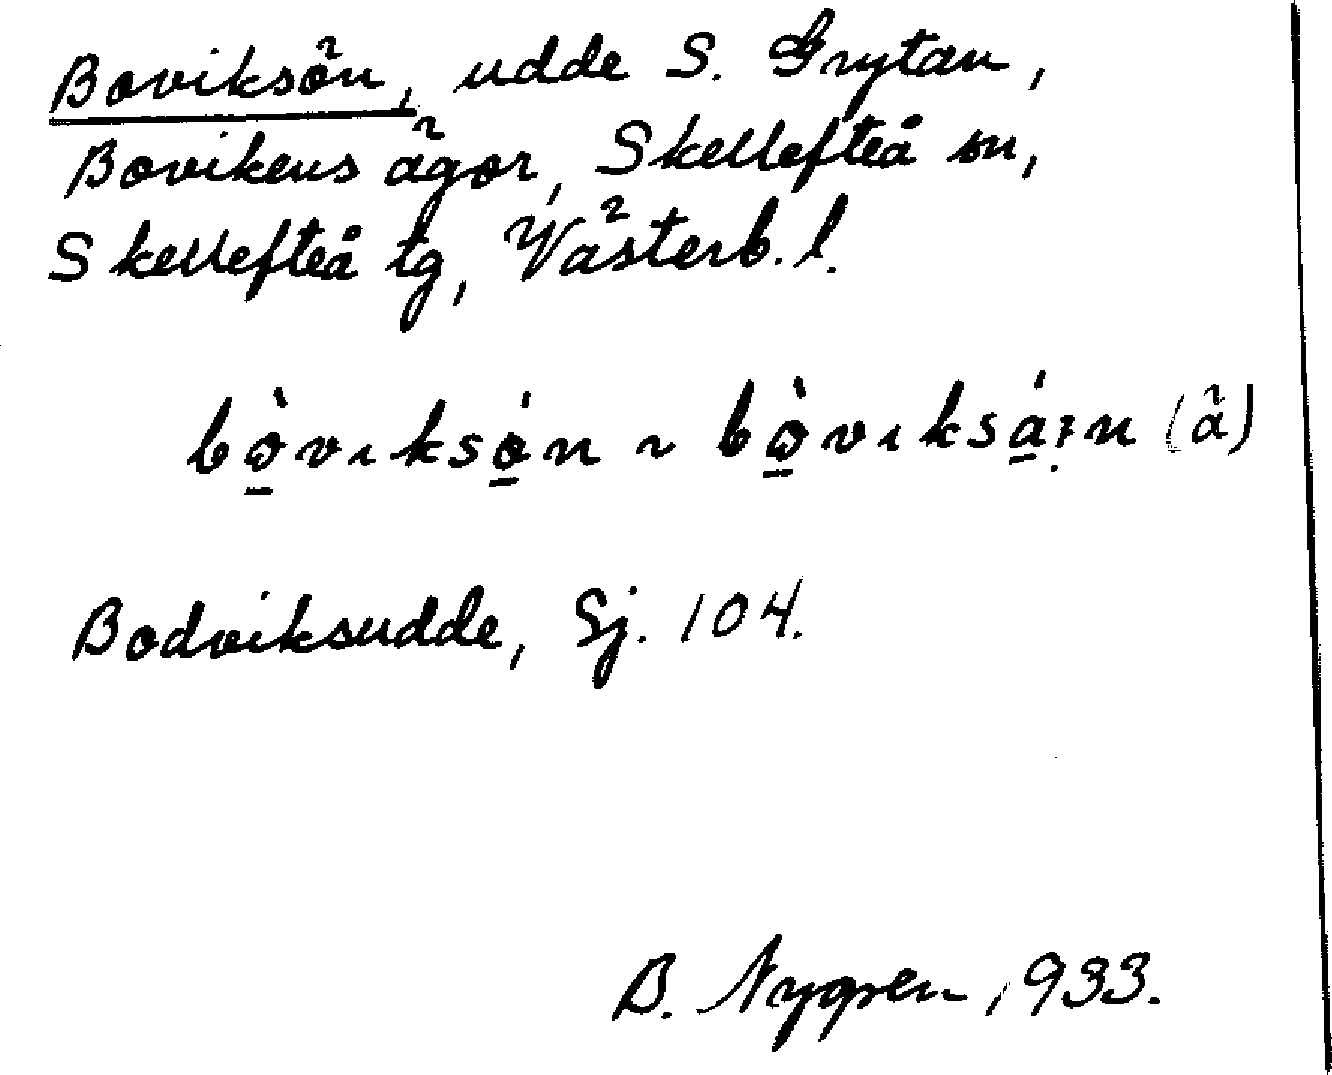 Boviksön, udde S. Grytan,
Bovikens ägor, Skellefteå sn,
Skellefteå tg, Västerb. l.
bò̲vıksó̲n ~ bò̲vıksá̲ın (ä)
Bodviksudde, Sj. 104.
B. Nygren 1933.